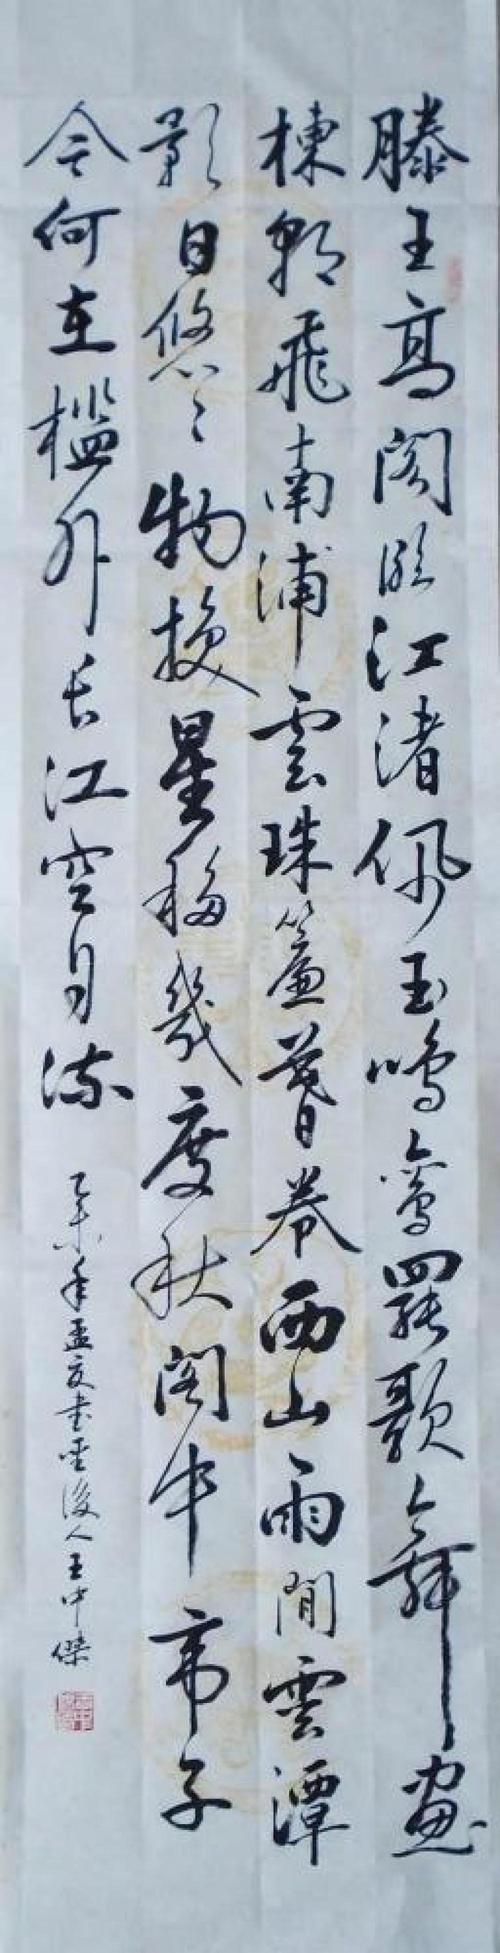 滕王高阁临江渚佩玉鸣鸾罢歌舞画
栋朝飞南浦雲珠簾暮卷西山雨閒雲潭
影日悠々物换星移幾度秋阁中帝子
今何在槛外长江空自流
乙未年孟夏书圣後人王中傑